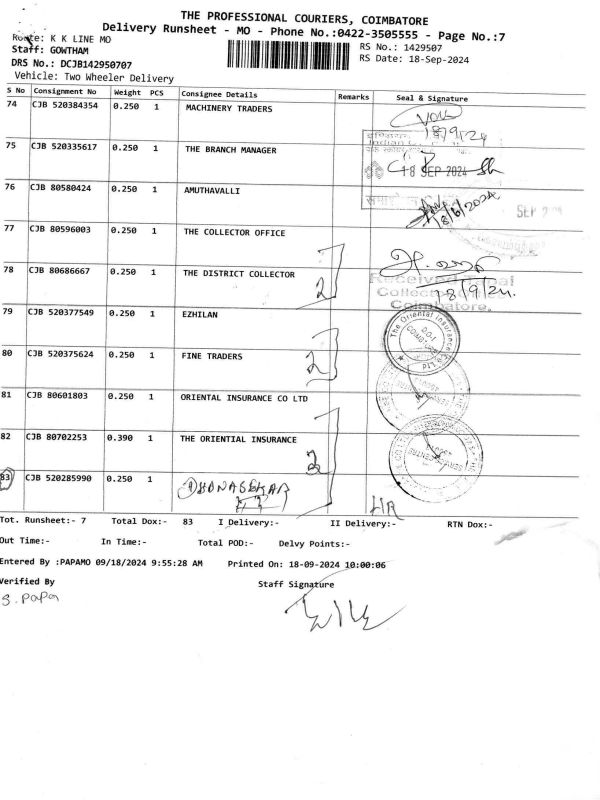 THE PROFESSIONAL COURIERS, COIMBATORE
Delivery Runsheet - MO - Phone No.:0422-3505555 - Page No.:7
Route: K K LINE MO
RS No.: 1429507
Staff: GOWTHAM
RS Date: 18-Sep-2024
DRS No.: DCJB142950707
Vehicle: Two Wheeler Delivery
S No Consignment No Weight PCS Consignee Details Remarks Seal & Signature
74 CJB 520384354 0.250 1 MACHINERY TRADERS
18/9/24
75 CJB 520335617 0.250 1 THE BRANCH MANAGER
18 SEP 2024
76 CJB 80580424 0.250 1 AMUTHAVALLI
77 CJB 80596003 0.250 1 THE COLLECTOR OFFICE
78 CJB 80686667 0.250 1 THE DISTRICT COLLECTOR 2
Received Tapal
18/9/24.
Coimbatore.
79 CJB 520377549 0.250 1 EZHILAN
The Oriental Insurance
80 CJB 520375624 0.250 1 FINE TRADERS 2
81 CJB 80601803 0.250 1 ORIENTAL INSURANCE CO LTD
82 CJB 80702253 0.390 1 THE ORIENTIAL INSURANCE
83 CJB 520285990 0.250 1
HR
Tot. Runsheet:- 7 Total Dox:- 83 I Delivery:- II Delivery:- RTN Dox:-
Out Time:- In Time:- Total POD:- Delvy Points:-
Entered By :PAPAMO 09/18/2024 9:55:28 AM Printed On: 18-09-2024 10:00:06
Verified By Staff Signature
S. Papa